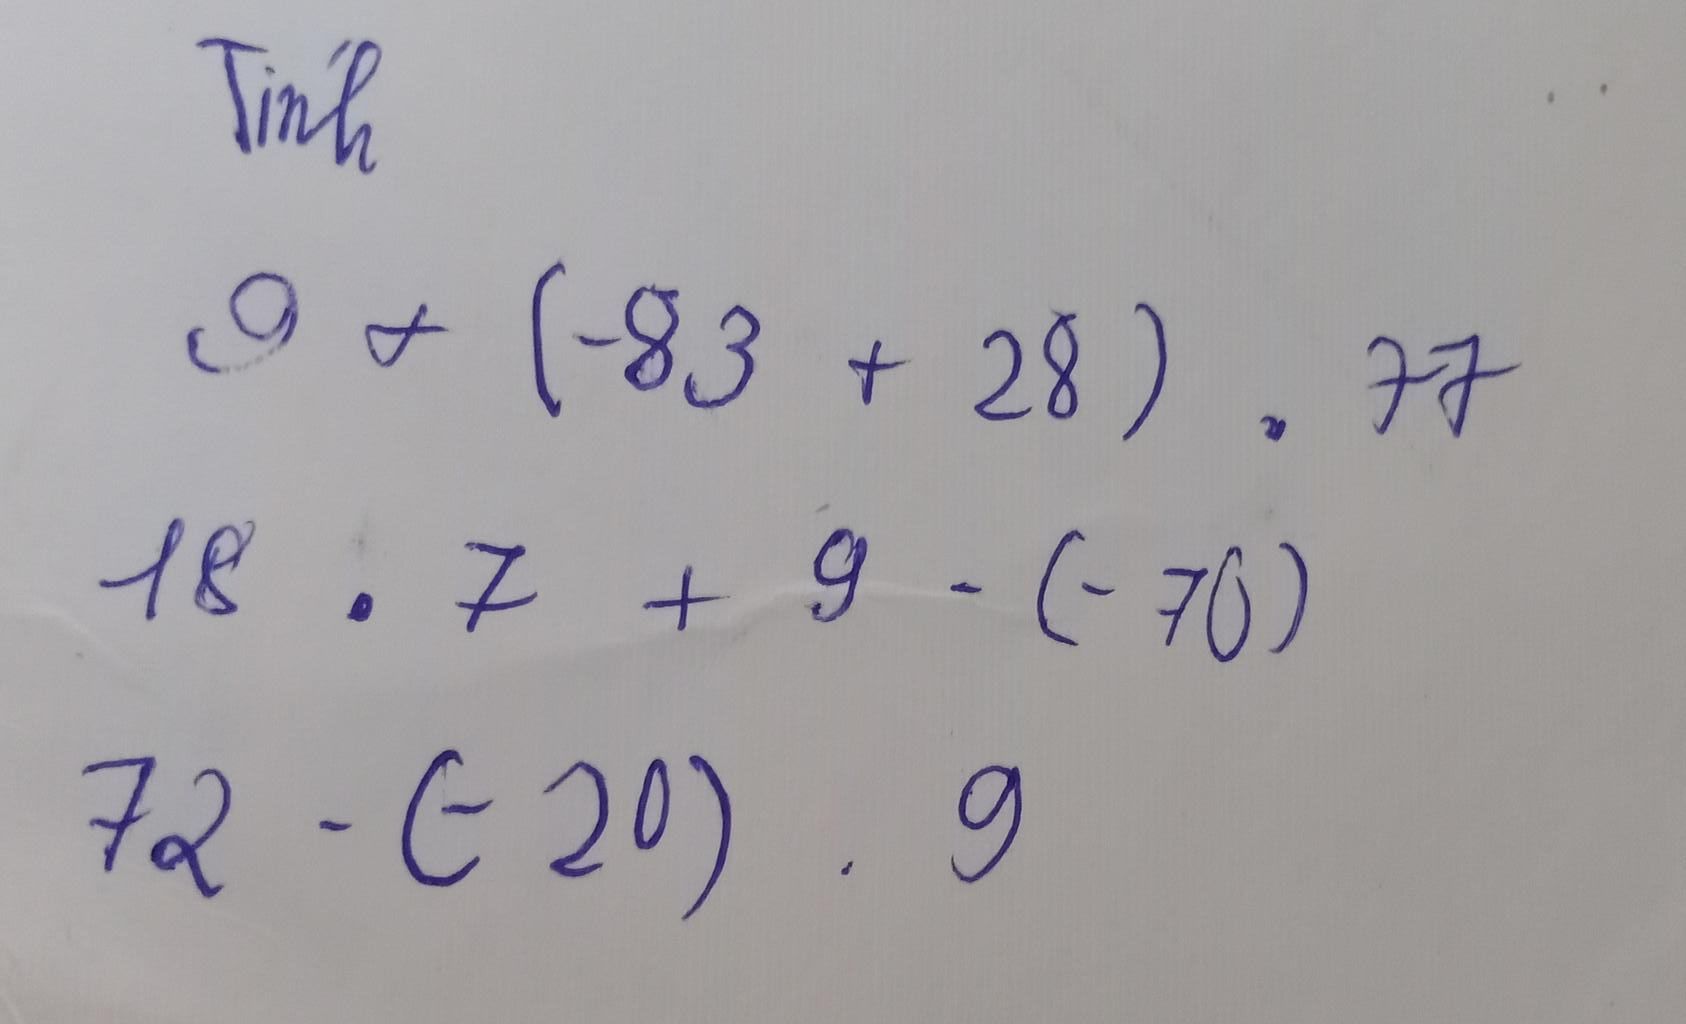 Tính
9 + (-83 + 28) . 77
18 . 7 + 9 - (-70)
72 - (-20) . 9